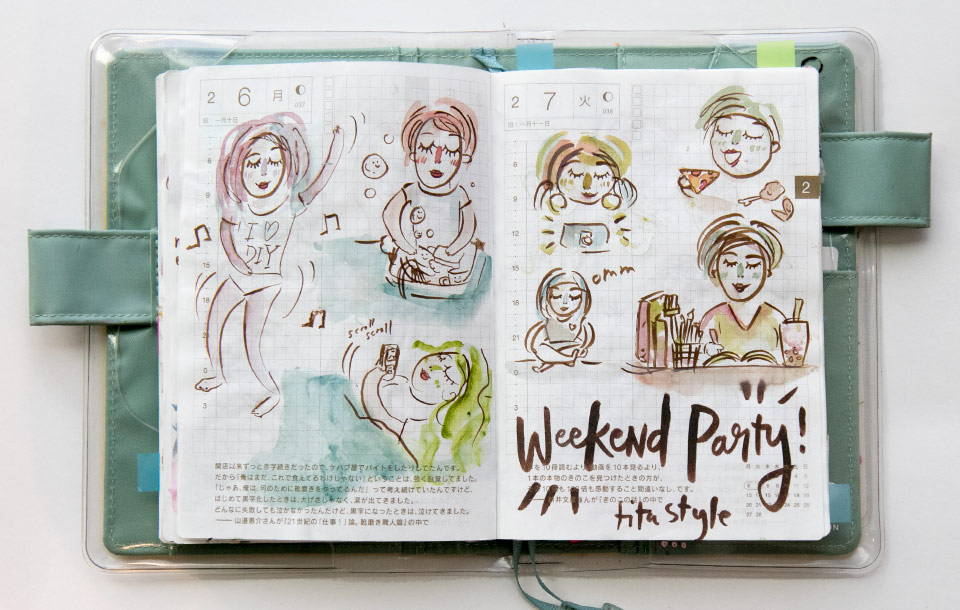 2 6 月
037
旧:一月十日
6
9
I ♡
DIY
15
18
21
0
3
scroll
scroll
開店以来ずっと赤字続きだったので、ケバブ屋でバイトをしたりしてたんです。
だから「俺はまだ、これで食えてるわけじゃない」ということは、強く自覚してました。
「じゃあ、俺は、何のために靴磨きをやってるんだ」って考え続けていたんですけど、
はじめて黒字化したときは、大げさじゃなく、涙が出てきました。
どんなに失敗しても泣かなかったんだけど、黒字になったときは、泣けてきました。
—— 山邊恵介さんが『21世紀の「仕事!」論。靴磨き職人篇』の中で
2 7 火
038
旧:一月十一日
6
9
12
15
18
21
0
3
2
omm
Weekend Party!
を10冊読むより、動画を10本見るより、
1本の本物のきのこを見つけたときの方が、
倍も感動すること間違いなしです。
さんが『きのこの話』の中で
titu style